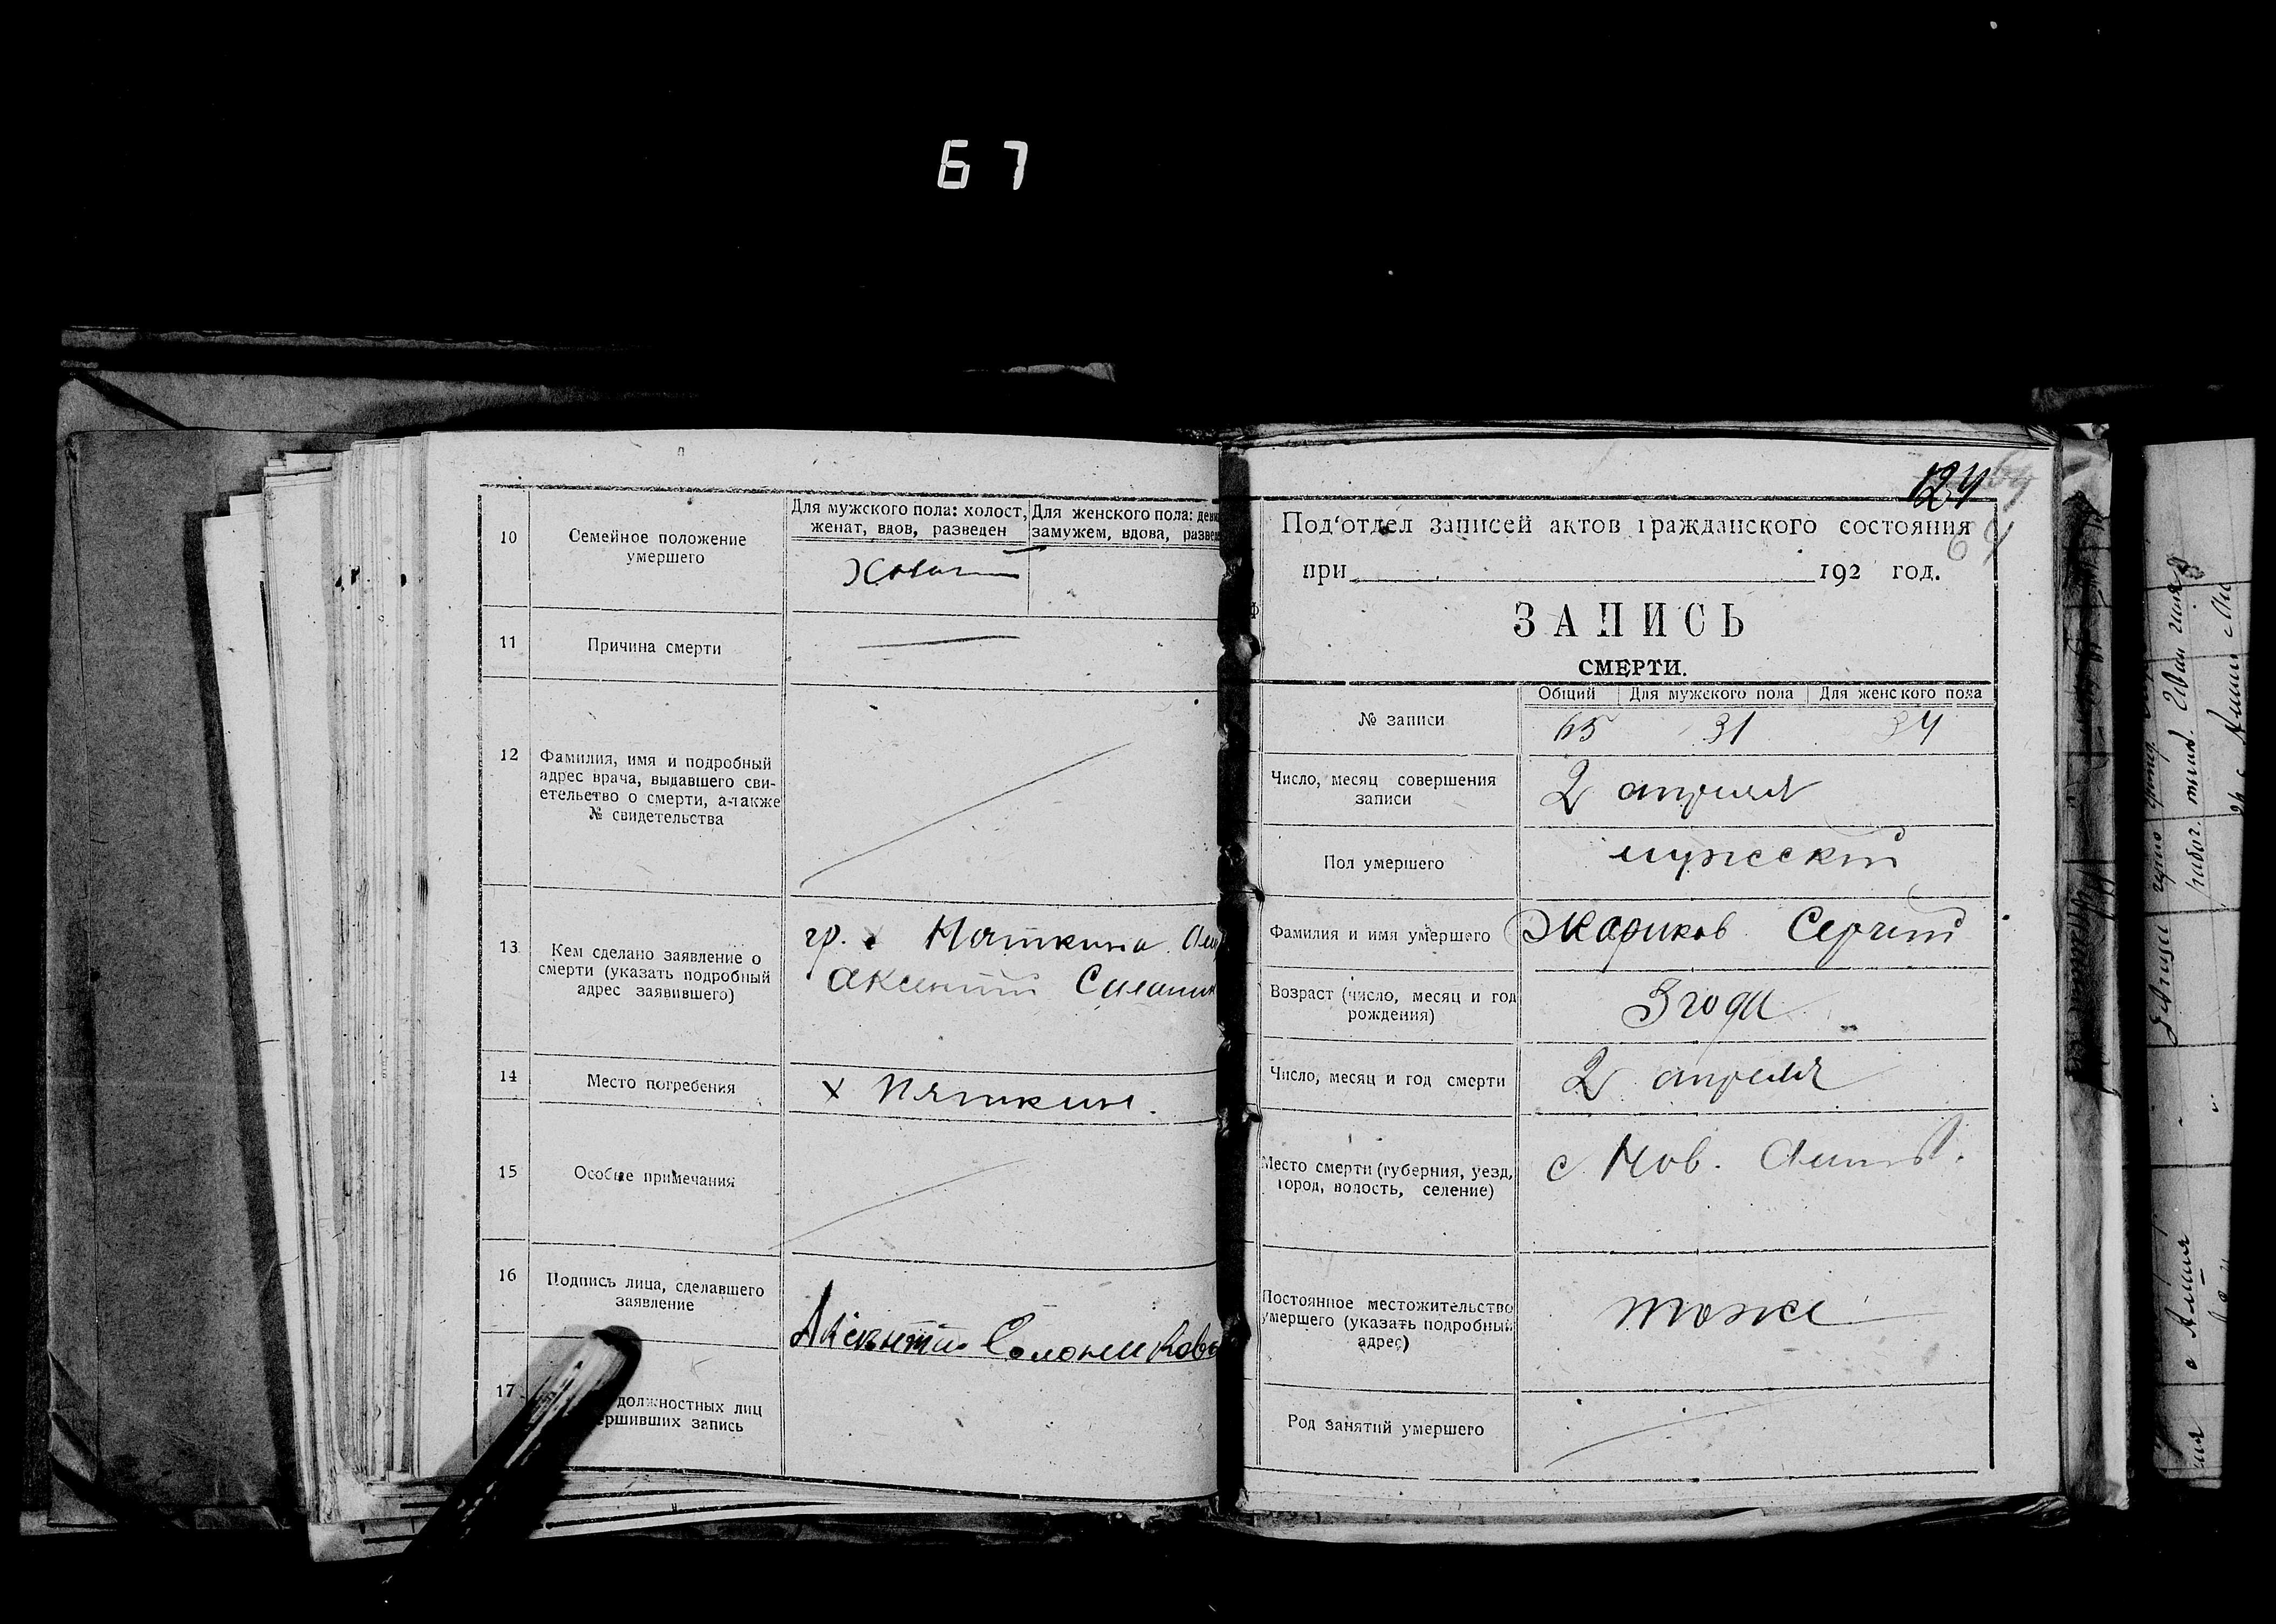 67
10
Семейное положение
умершего
Для мужского пола: холост,
женат, вдов, разведен
Для женского пола:
замужем, вдова,
Холост
11
Причина смерти
12
Фамилия, имя и подробный
адрес врача, выдавшего сви-
етельство о смерти, а также
№ свидетельства
13
Кем сделано заявление о
смерти (указать подробный
адрес заявившего)
гр.
14
Место погребения
х Пяткин.
15
Особые примечания
16
Подпись лица, сделавшего
заявление
17
должностных лиц
ершивших запись
124
64
Под'отдел записей актов гражданского состояния
при 192 год.
ЗАПИСЬ
СМЕРТИ.
№ записи
Общий Для мужского пола Для женского пола
65 31 34
Число, месяц совершения
записи
2 апреля
Пол умершего
мужский
Фамилия и имя умершего
Жариков Сергий
Возраст (число, месяц и год
рождения)
3 года
Число, месяц и год смерти
2 апреля
Место смерти (губерния, уезд,
город, волость, селение)
с Нов.
Постоянное местожительство
умершего (указать подробный
адрес)
тоже
Род занятий умершего